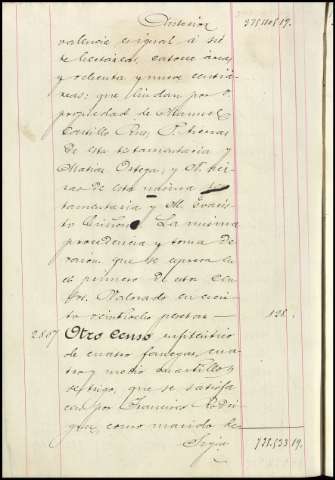 Anterior 375.405.19.
valencia original á sie
te hectáreas, catorce áreas
y ochenta y nueve centiá
reas: que lindan por O.
propiedad de Manuel
Castillo P. tierras
de esta testamentaria y
Matias Ortega; y N. tier
ras de esta misma tes
tamentaria y M. Evaris
to Quiñones. La misma
procedencia y toma de
razon que se expresa en
el primero de esta cla
se. Valorado en cien
to veintiocho pesetas — 128.
2807 Otro censo enfitéutico
de cuatro fanegas, cua
tro y medio cuartillos,
de trigo, que se satisfa
cen por Francisco Rodri
guez, como marido de
Sigue 533.19.